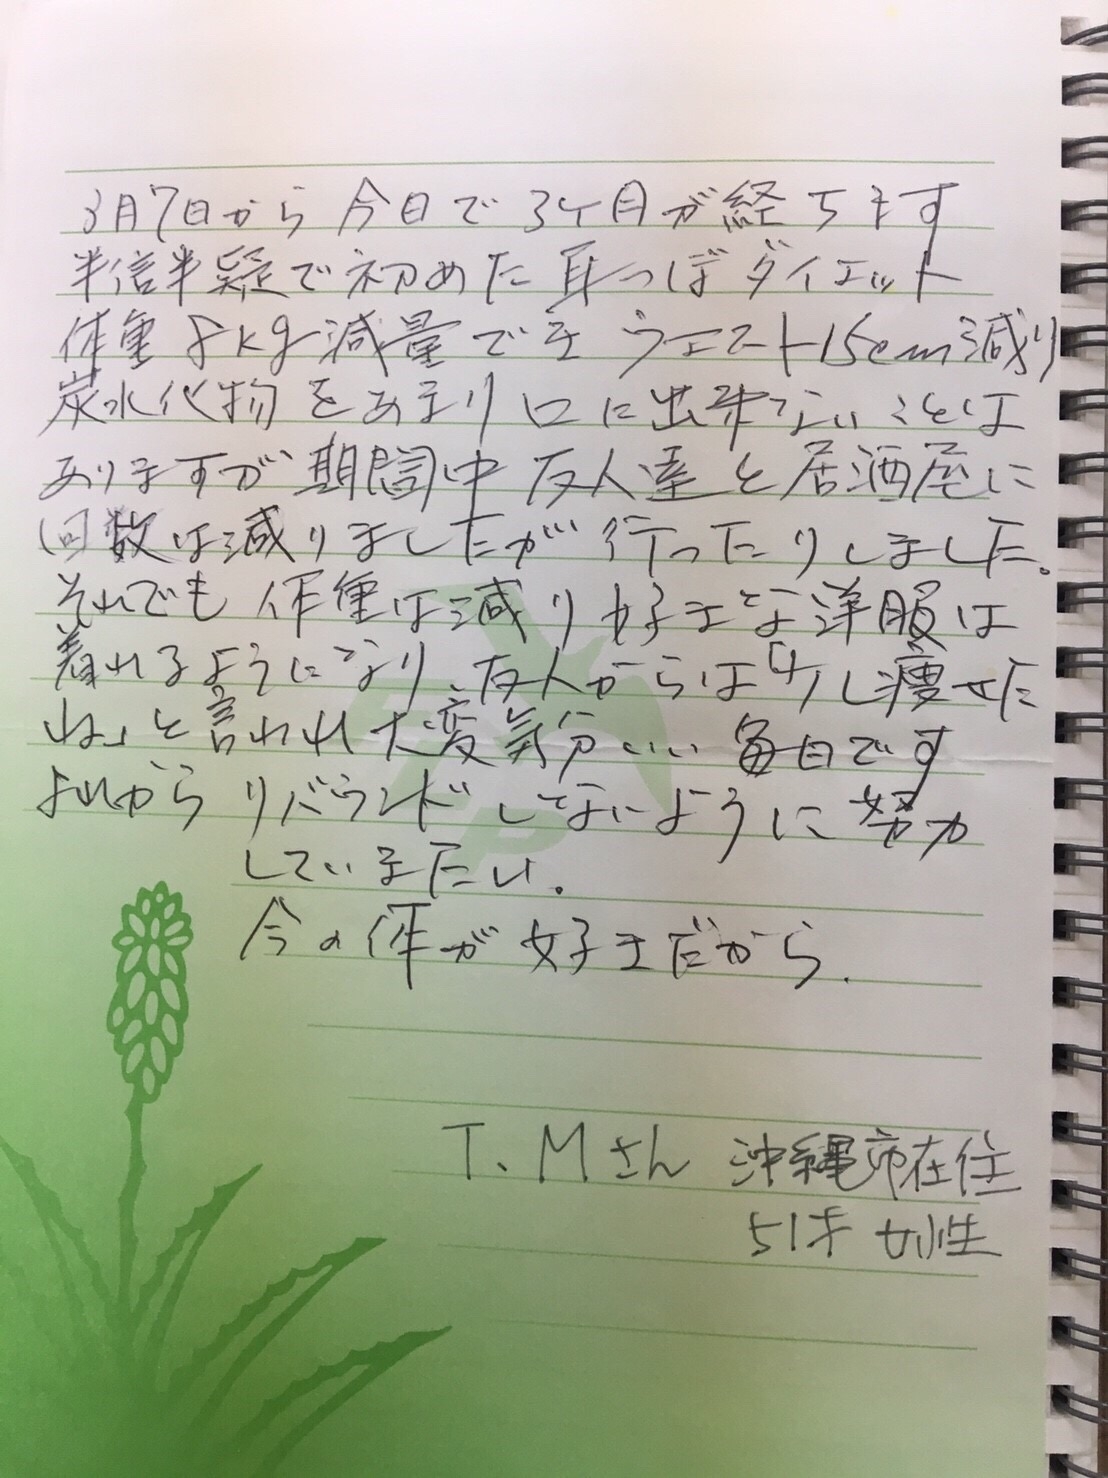 3月7日から今日で3ヶ月が経ちます
半信半疑で初めた耳つぼダイエット
体重8kg減量でき ウエスト15cm減り
炭水化物をあまり口に出来ないことは
ありますが期間中友人達と居酒屋に
回数は減りましたが行ったりしました。
それでも体重は減り好きな洋服は
着れるようになり、友人からは「少し痩せた
ね」と言われ大変気分いい毎日です
これからリバウンドしないように努力
していきたい。
今の体が好きだから.
T、Mさん 沖縄市在住
51才 女性